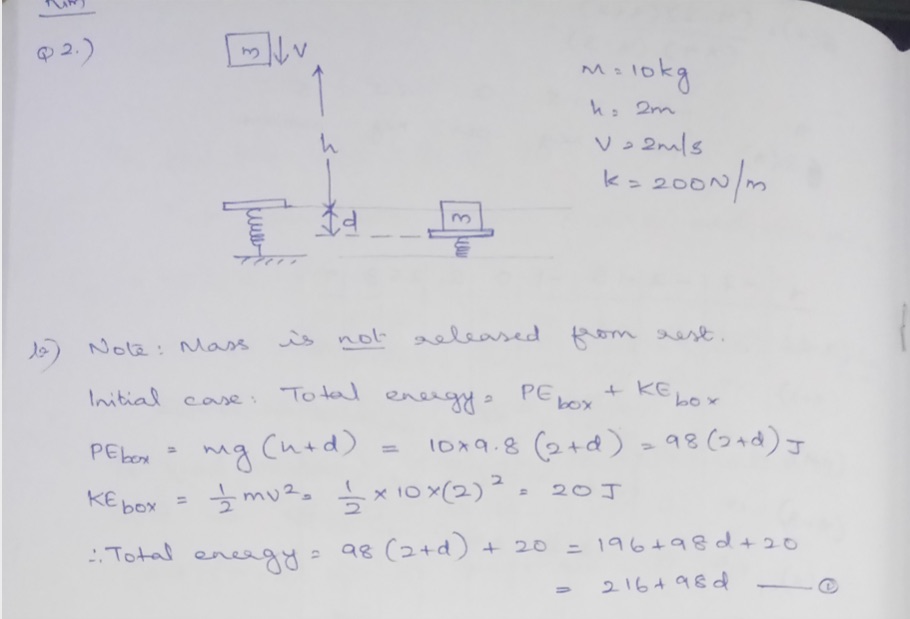 Q 2.)
m ↓ V
h
d
m
M = 10kg
h = 2m
V = 2m/s
K = 200N/m
b) Note: Mass is not released from rest.
Initial case: Total energy = PE box + KE box
PE box = mg (h+d) = 10×9.8 (2+d) = 98 (2+d) J
KE box = 1/2 mv² = 1/2 × 10 × (2)² = 20 J
∴ Total energy = 98 (2+d) + 20 = 196+98d+20
= 216+98d —— ①